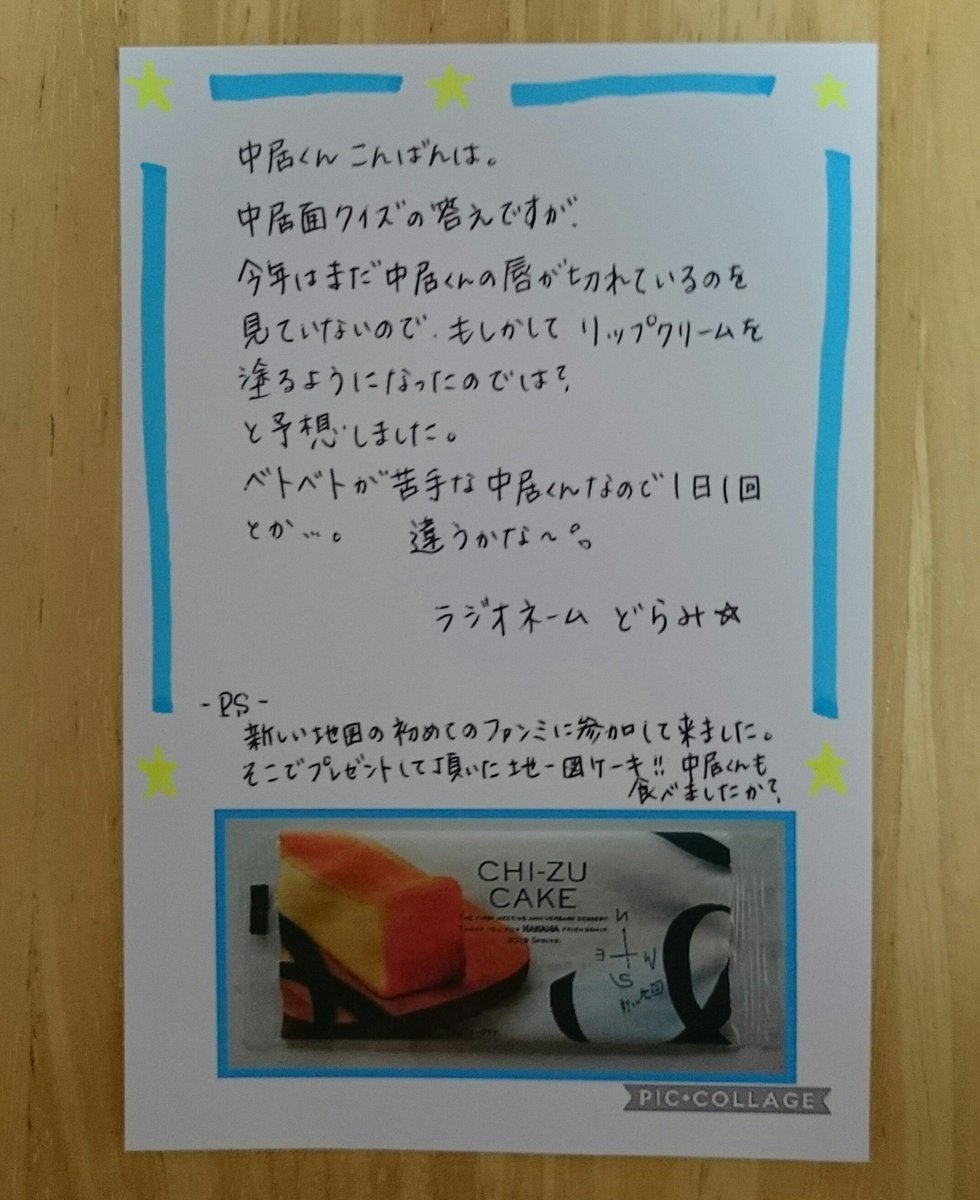 中居くん こんばんは。
中居面クイズの答えですが、
今年はまだ中居くんの唇が切れているのを
見ていないので、もしかして リップクリームを
塗るようになったのでは?
と予想しました。
ベトベトが苦手な中居くんなので1日1回
とか…。 違うかな〜。
ラジオネーム どらみ☆
-P.S-
新しい地図の初めてのファンミに参加して来ました。
そこでプレゼントして頂いた地ー図ケーキ!! 中居くんも
食べましたか?
CHI-ZU
CAKE
THE FIRST MEETING ANNIVERSARY DESSERT.
THANK YOU FOR NAKAMA FRIENDSHIP.
2019 SPRING.
N
E W
S
新しい地図
PIC•COLLAGE